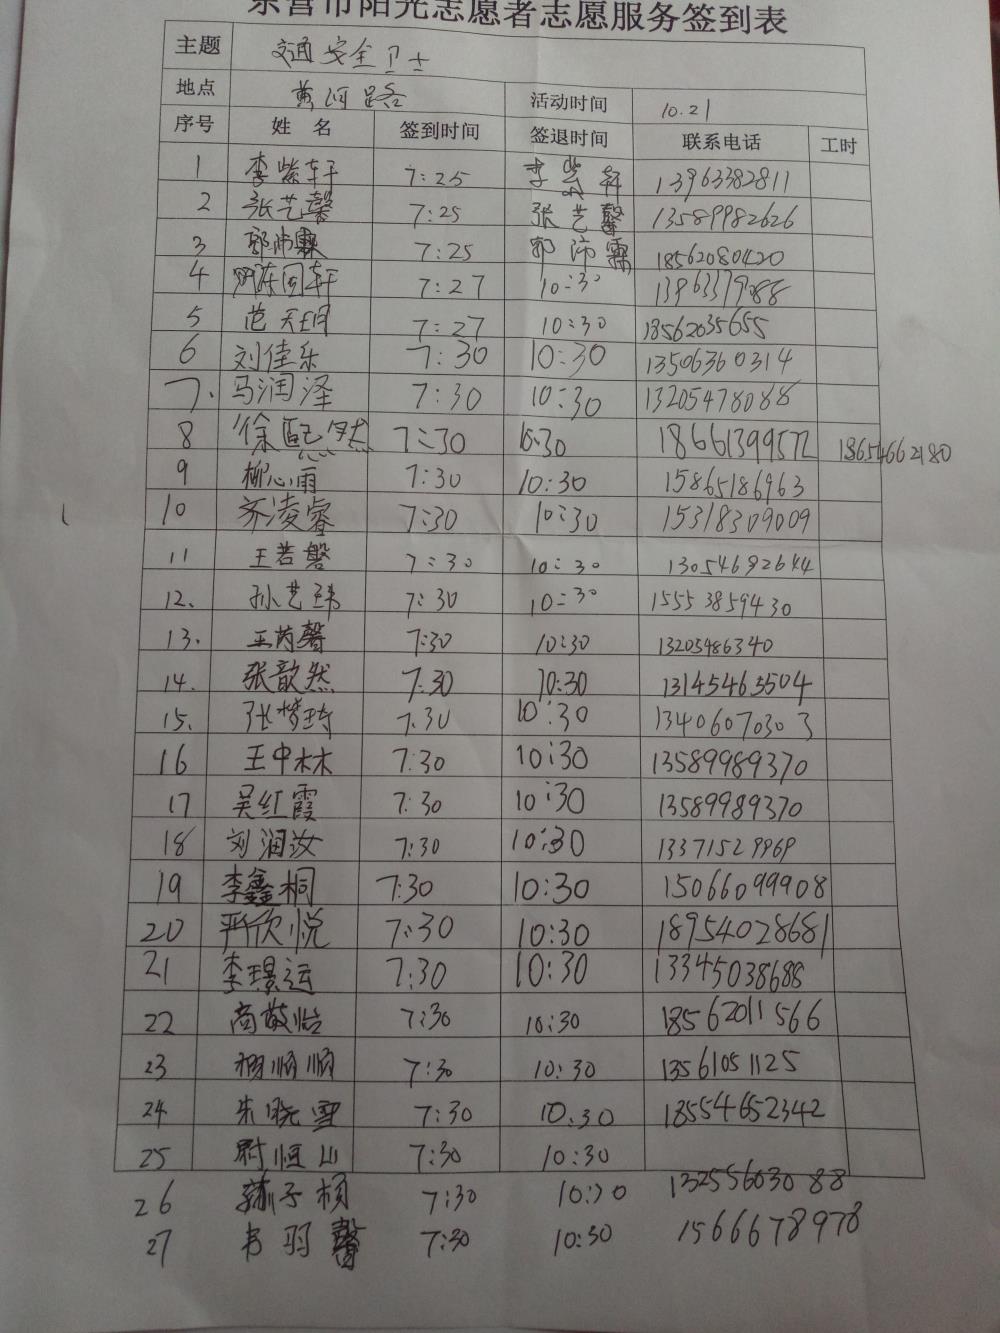 东营市阳光志愿者志愿服务签到表
主题 交通安全卫士
地点 黄河路 活动时间 10.21
序号 姓名 签到时间 签退时间 联系电话 工时
1 李紫轩 7:25 李紫轩 13963382811
2 张艺馨 7:25 张艺馨 13589982626
3 郭沛霖 7:25 郭沛霖 18562080420
4 7:27 10:30 13963379088
5 范天玥 7:27 10:30 18562035655
6 刘佳乐 7:30 10:30 13506360314
7. 马润泽 7:30 10:30 13205478088
8 徐熙然 7:30 10:30 18661399572 18654662180
9 柳心雨 7:30 10:30 15865186963
10 齐凌睿 7:30 10:30 15318309009
11 王若馨 7:30 10:30 13054692644
12. 孙艺玮 7:30 10:30 15553859430
13. 王芮馨 7:30 10:30 13205486340
14. 张歆然 7:30 10:30 13145465504
15. 张梦琦 7:30 10:30 13406070303
16 王中林 7:30 10:30 13589989370
17 吴红霞 7:30 10:30 13589989370
18 刘润汝 7:30 10:30 13371529969
19 李鑫桐 7:30 10:30 15066099908
20 严欣悦 7:30 10:30 18954028681
21 李璟运 7:30 10:30 13345038688
22 商敬怡 7:30 10:30 18562011566
23 顺顺 7:30 10:30 13561051125
24 朱晓雪 7:30 10:30 18554652342
25 尉恒山 7:30 10:30
26 子桢 7:30 10:30 13255603088
27 韦羽馨 7:30 10:30 1566678978